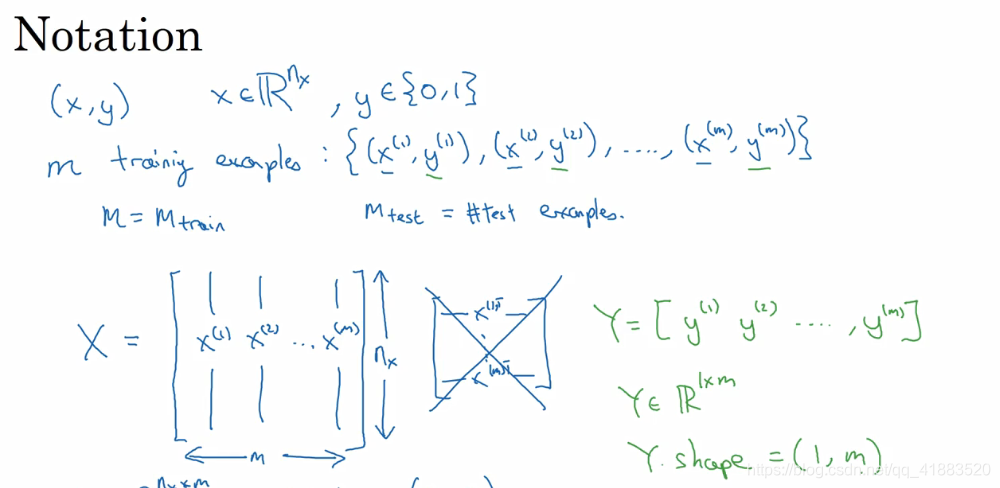 Notation
(x,y) x∈ℝ^{n_x}, y∈{0,1}
m training examples : {(x^{(1)},y^{(1)}),(x^{(2)},y^{(2)}),....,(x^{(m)},y^{(m)})}
M = M_{train} M_{test} = #test examples.
X = [x^{(1)} x^{(2)} ... x^{(m)}] n_x
m
x^{(1)T}
⋮
x^{(m)T}
Y = [y^{(1)} y^{(2)} ...., y^{(m)}]
Y∈ℝ^{1×m}
Y.shape = (1,m)
https://blog.csdn.net/qq_41883520
n_x×m